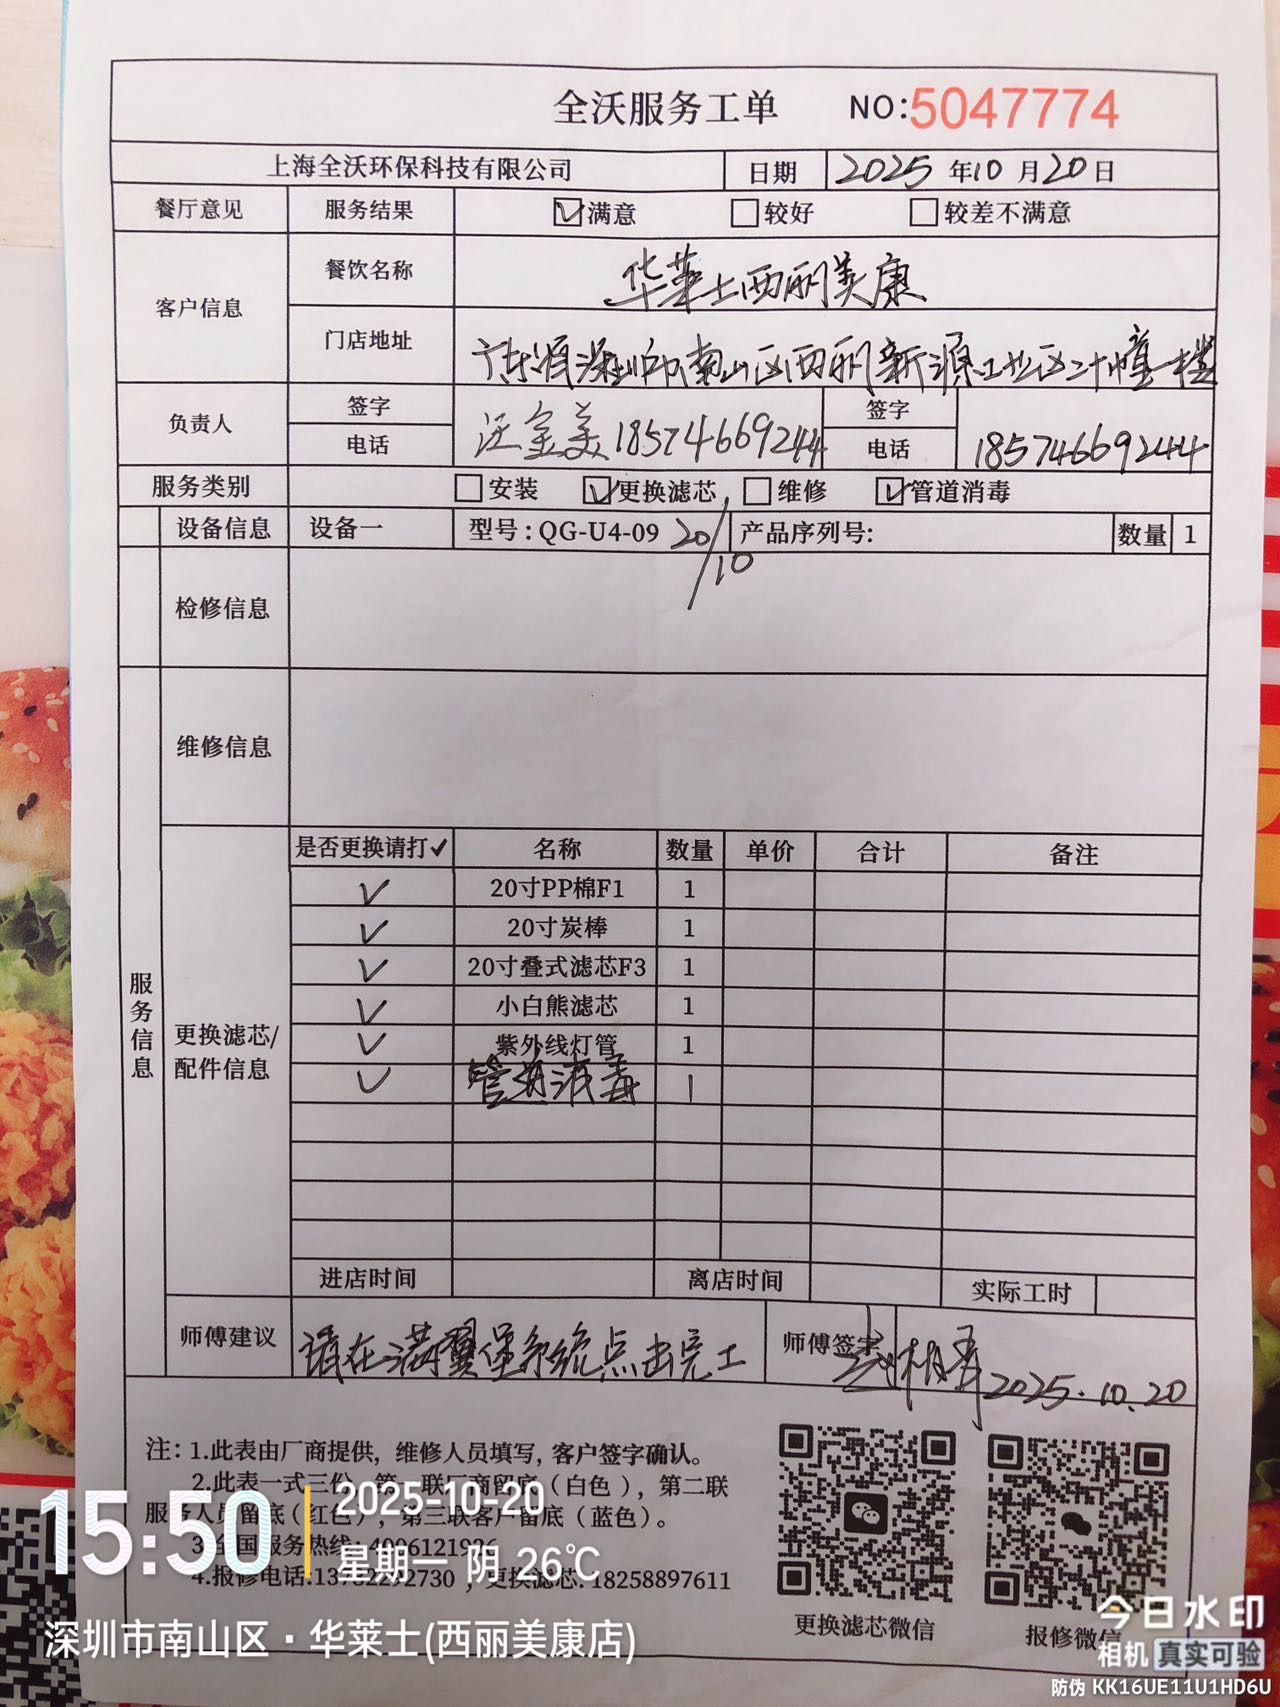 全沃服务工单 NO:5047774
上海全沃环保科技有限公司 日期 2025年10月20日
餐厅意见 服务结果 ☑满意 □较好 □较差不满意
客户信息 餐饮名称 华莱士西丽美康
门店地址 广东省深圳市南山区西丽新源工业区二十幢一楼
负责人 签字 电话 汪金美 18574669244 签字 电话 18574669244
服务类别 □安装 ☑更换滤芯 □维修 ☑管道消毒
设备信息 设备一 型号:QG-U4-09 20/10 产品序列号: 数量 1
检修信息
维修信息
服务信息
更换滤芯/配件信息
是否更换请打✓ 名称 数量 单价 合计 备注
✓ 20寸PP棉F1 1
✓ 20寸炭棒 1
✓ 20寸叠式滤芯F3 1
✓ 小白熊滤芯 1
✓ 紫外线灯管 1
✓ 管道消毒 1
进店时间 离店时间 实际工时
师傅建议 请在满翼堡系统点击完工 师傅签字 2025.10.20
注: 1.此表由厂商提供, 维修人员填写, 客户签字确认。
2.此表一式三份, 第一联厂商留底(白色), 第二联
服务人员留底(红色), 第三联客户留底(蓝色)。
3.全国服务热线: 4006121926
4.报修电话:13762292730 , 更换滤芯: 18258897611
更换滤芯微信 报修微信
15:50 2025-10-20
星期一 阴 26℃
深圳市南山区·华莱士(西丽美康店)
今日水印
相机 真实可验
防伪 KK16UE11U1HD6U